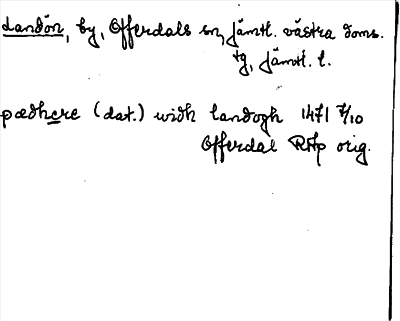 Landön, by, Offerdals sn, Jämtl. västra doms.
tg, Jämtl. l.
pædhere (dat.) widh landogh 1471 7/10
Offerdal RAp orig.